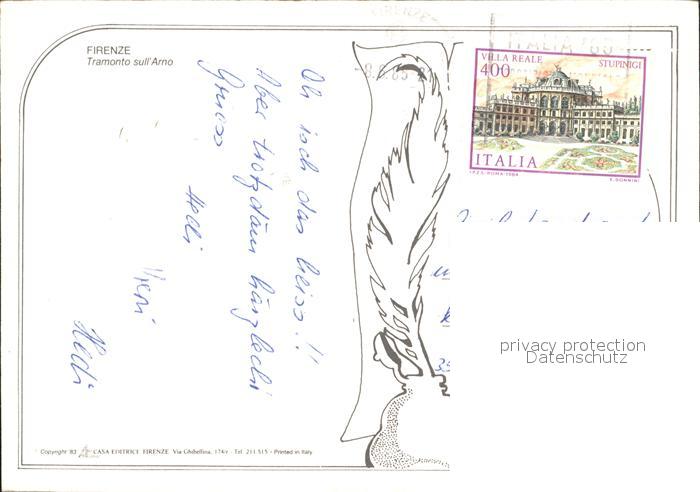 FIRENZE
Tramonto sull'Arno
Oh isch das heiss!!
Aber trotzdäm härzlechi
Gruess
Hedi
Vreni
Hedi
FIRENZE
ITALIA '85
VILLA REALE STUPINIGI
400
ITALIA
I.P.Z.S.-ROMA-1984 E. DONNINI
privacy protection
Datenschutz
Copyright '83 CASA EDITRICE FIRENZE Via Ghibellina, 174/r - Tel. 211.515 - Printed in Italy